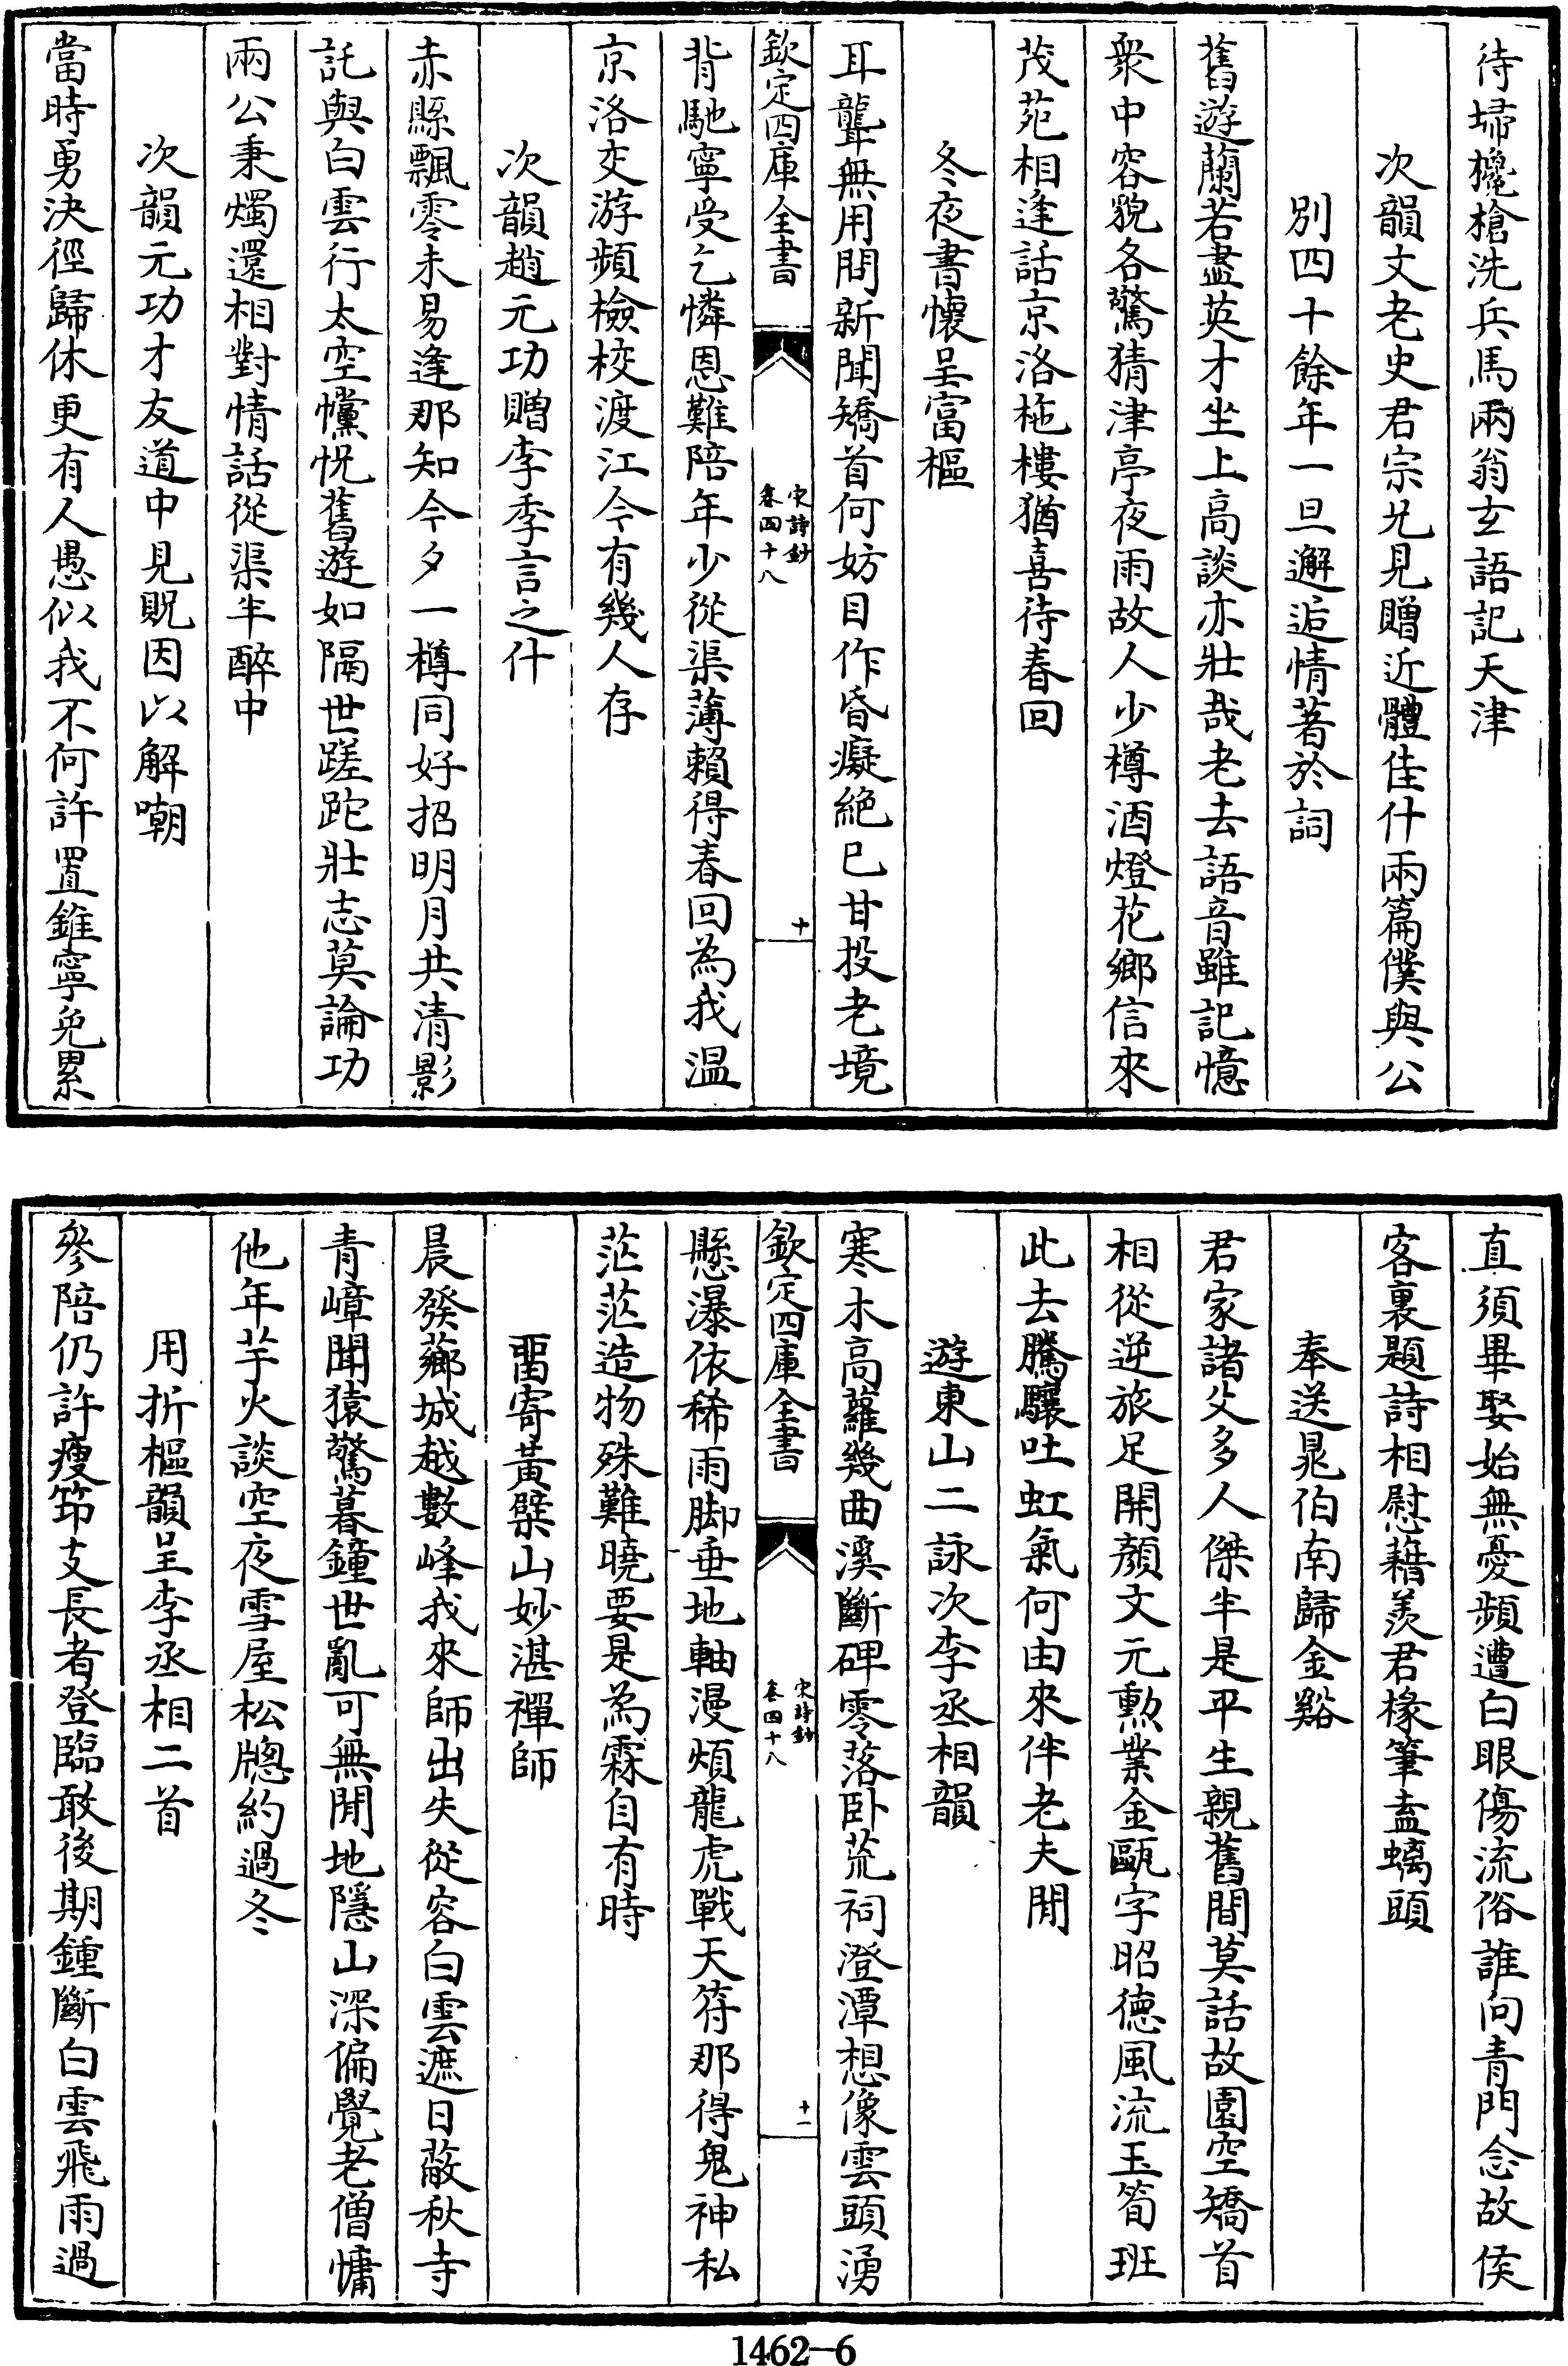 待埽欃槍洗兵馬兩翁玄語記天津
次韻文老史君宗兄見贈近體佳什兩篇僕與公
別四十餘年一旦邂逅情著於詞
舊遊蘭若盡英才坐上高談亦壯哉老去語音雖記憶
衆中容貌各驚猜津亭夜雨故人少樽酒燈花鄉信來
茂苑相逢話京洛柂樓猶喜待春回
冬夜書懷呈富樞
耳聾無用問新聞矯首何妨目作昏癡絕已甘投老境
欽定四庫全書
宋詩鈔
卷四十八
十
背馳寧受乞憐恩難陪年少從渠薄賴得春回為我溫
京洛交游頻檢校渡江今有幾人存
次韻趙元功贈李季言之什
赤縣飄零未易逢那知今夕一樽同好招明月共清影
託與白雲行太空懭怳舊遊如隔世蹉跎壯志莫論功
兩公秉燭還相對情話從渠半醉中
次韻元功才友道中見貺因以解嘲
當時勇決徑歸休更有人愚似我不何許置錐寧免累
直須畢娶始無憂頻遭白眼傷流俗誰向青門念故侯
客裏題詩相慰藉羨君椽筆盍螭頭
奉送晁伯南歸金谿
君家諸父多人傑半是平生親舊間莫話故園空矯首
相從逆旅足開顏文元勳業金甌字昭德風流玉筍班
此去騰驤吐虹氣何由來伴老夫閒
遊東山二詠次李丞相韻
寒木高蘿幾曲溪斷碑零落卧荒祠澄潭想像雲頭湧
欽定四庫全書
宋詩鈔
卷四十八
十一
懸瀑依稀雨脚垂地軸漫煩龍虎戰天符那得鬼神私
茫茫造物殊難曉要是為霖自有時
畱寄黃檗山妙湛禪師
晨發薌城越數峰我來師出失從容白雲遮日蔽秋寺
青嶂聞猿驚暮鐘世亂可無閒地隱山深偏覺老僧慵
他年芋火談空夜雪屋松牕約過冬
用折樞韻呈李丞相二首
參陪仍許瘦筇支長者登臨敢後期鍾斷白雲飛雨過
1462-6